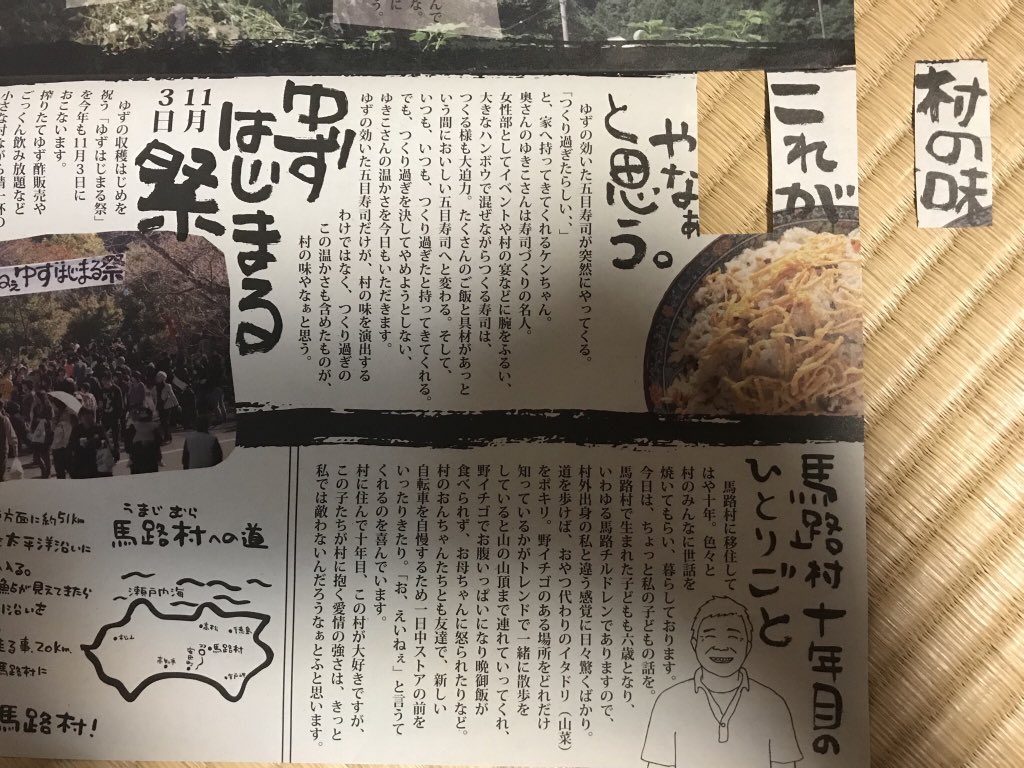 村の味
これが
やなぁ
と思う。
ゆずの効いた五目寿司が突然にやってくる。
「つくり過ぎたらしい、」
と、家へ持ってきてくれるケンちゃん。
奥さんのゆきこさんは寿司づくりの名人。
女性部としてイベントや村の宴などに腕をふるい、
大きなハンボウで混ぜながらつくる寿司は、
つくる様も大迫力。たくさんのご飯と具材があっと
いう間においしい五目寿司へと変わる。そして、
いつも、いつも、つくり過ぎたと持ってきてくれる。
でも、つくり過ぎを決してやめようとしない、
ゆきこさんの温かさを今日もいただきます。
ゆずの効いた五目寿司だけが、村の味を演出する
わけではなく、つくり過ぎの
この温かさも含めたものが、
村の味やなぁと思う。
ゆず
はじまる
祭
11月
3日
ゆずの収穫はじめを
祝う「ゆずはじまる祭」
を今年も11月3日に
おこないます。
搾りたてゆず酢販売や
ごっくん飲み放題など
ゆずはじまる祭
馬路村十年目の
ひとりごと
馬路村に移住して
はや十年。色々と
村のみんなに世話を
焼いてもらい、暮らしております。
今日は、ちょっと私の子どもの話を。
馬路村で生まれた子どもも六歳となり、
いわゆる馬路チルドレンでありますので、
村外出身の私と違う感覚に日々驚くばかり。
道を歩けば、おやつ代わりのイタドリ（山菜）
をポキリ。野イチゴのある場所をどれだけ
知っているかがトレンドで一緒に散歩を
していると山の山頂まで連れていってくれ、
野イチゴでお腹いっぱいになり晩御飯が
食べられず、お母ちゃんに怒られたりなど。
村のおんちゃんたちとも友達で、新しい
自転車を自慢するため一日中ストアの前を
いったりきたり。「お、えいねぇ」と言うて
くれるのを喜んでいます。
村に住んで十年目、この村が大好きですが、
この子たちが村に抱く愛情の強さは、きっと
私では敵わないんだろうなぁとふと思います。
うまじむら
馬路村への道
瀬戸内海
高松
徳島
松山
馬路村
高知市
安田町
室戸岬
方面に約51km
太平洋沿いに
入る。
が見えてきたら
川沿いを
走る事、20km
馬路村に
馬路村!